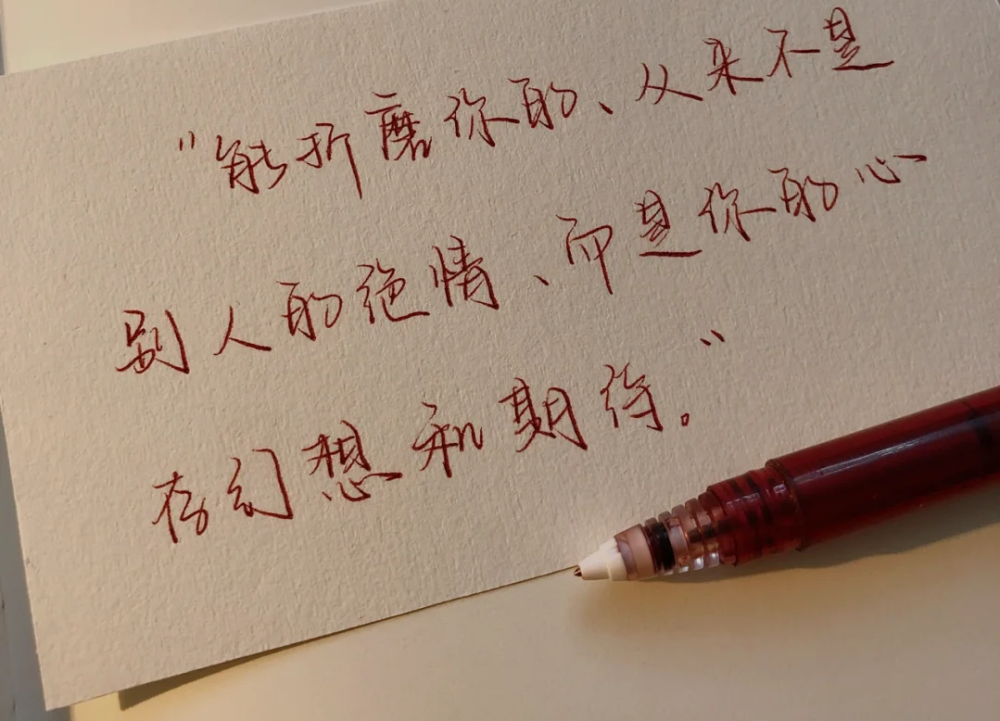 “能折磨你的、从来不是
别人的绝情、而是你的心
存幻想和期待。”